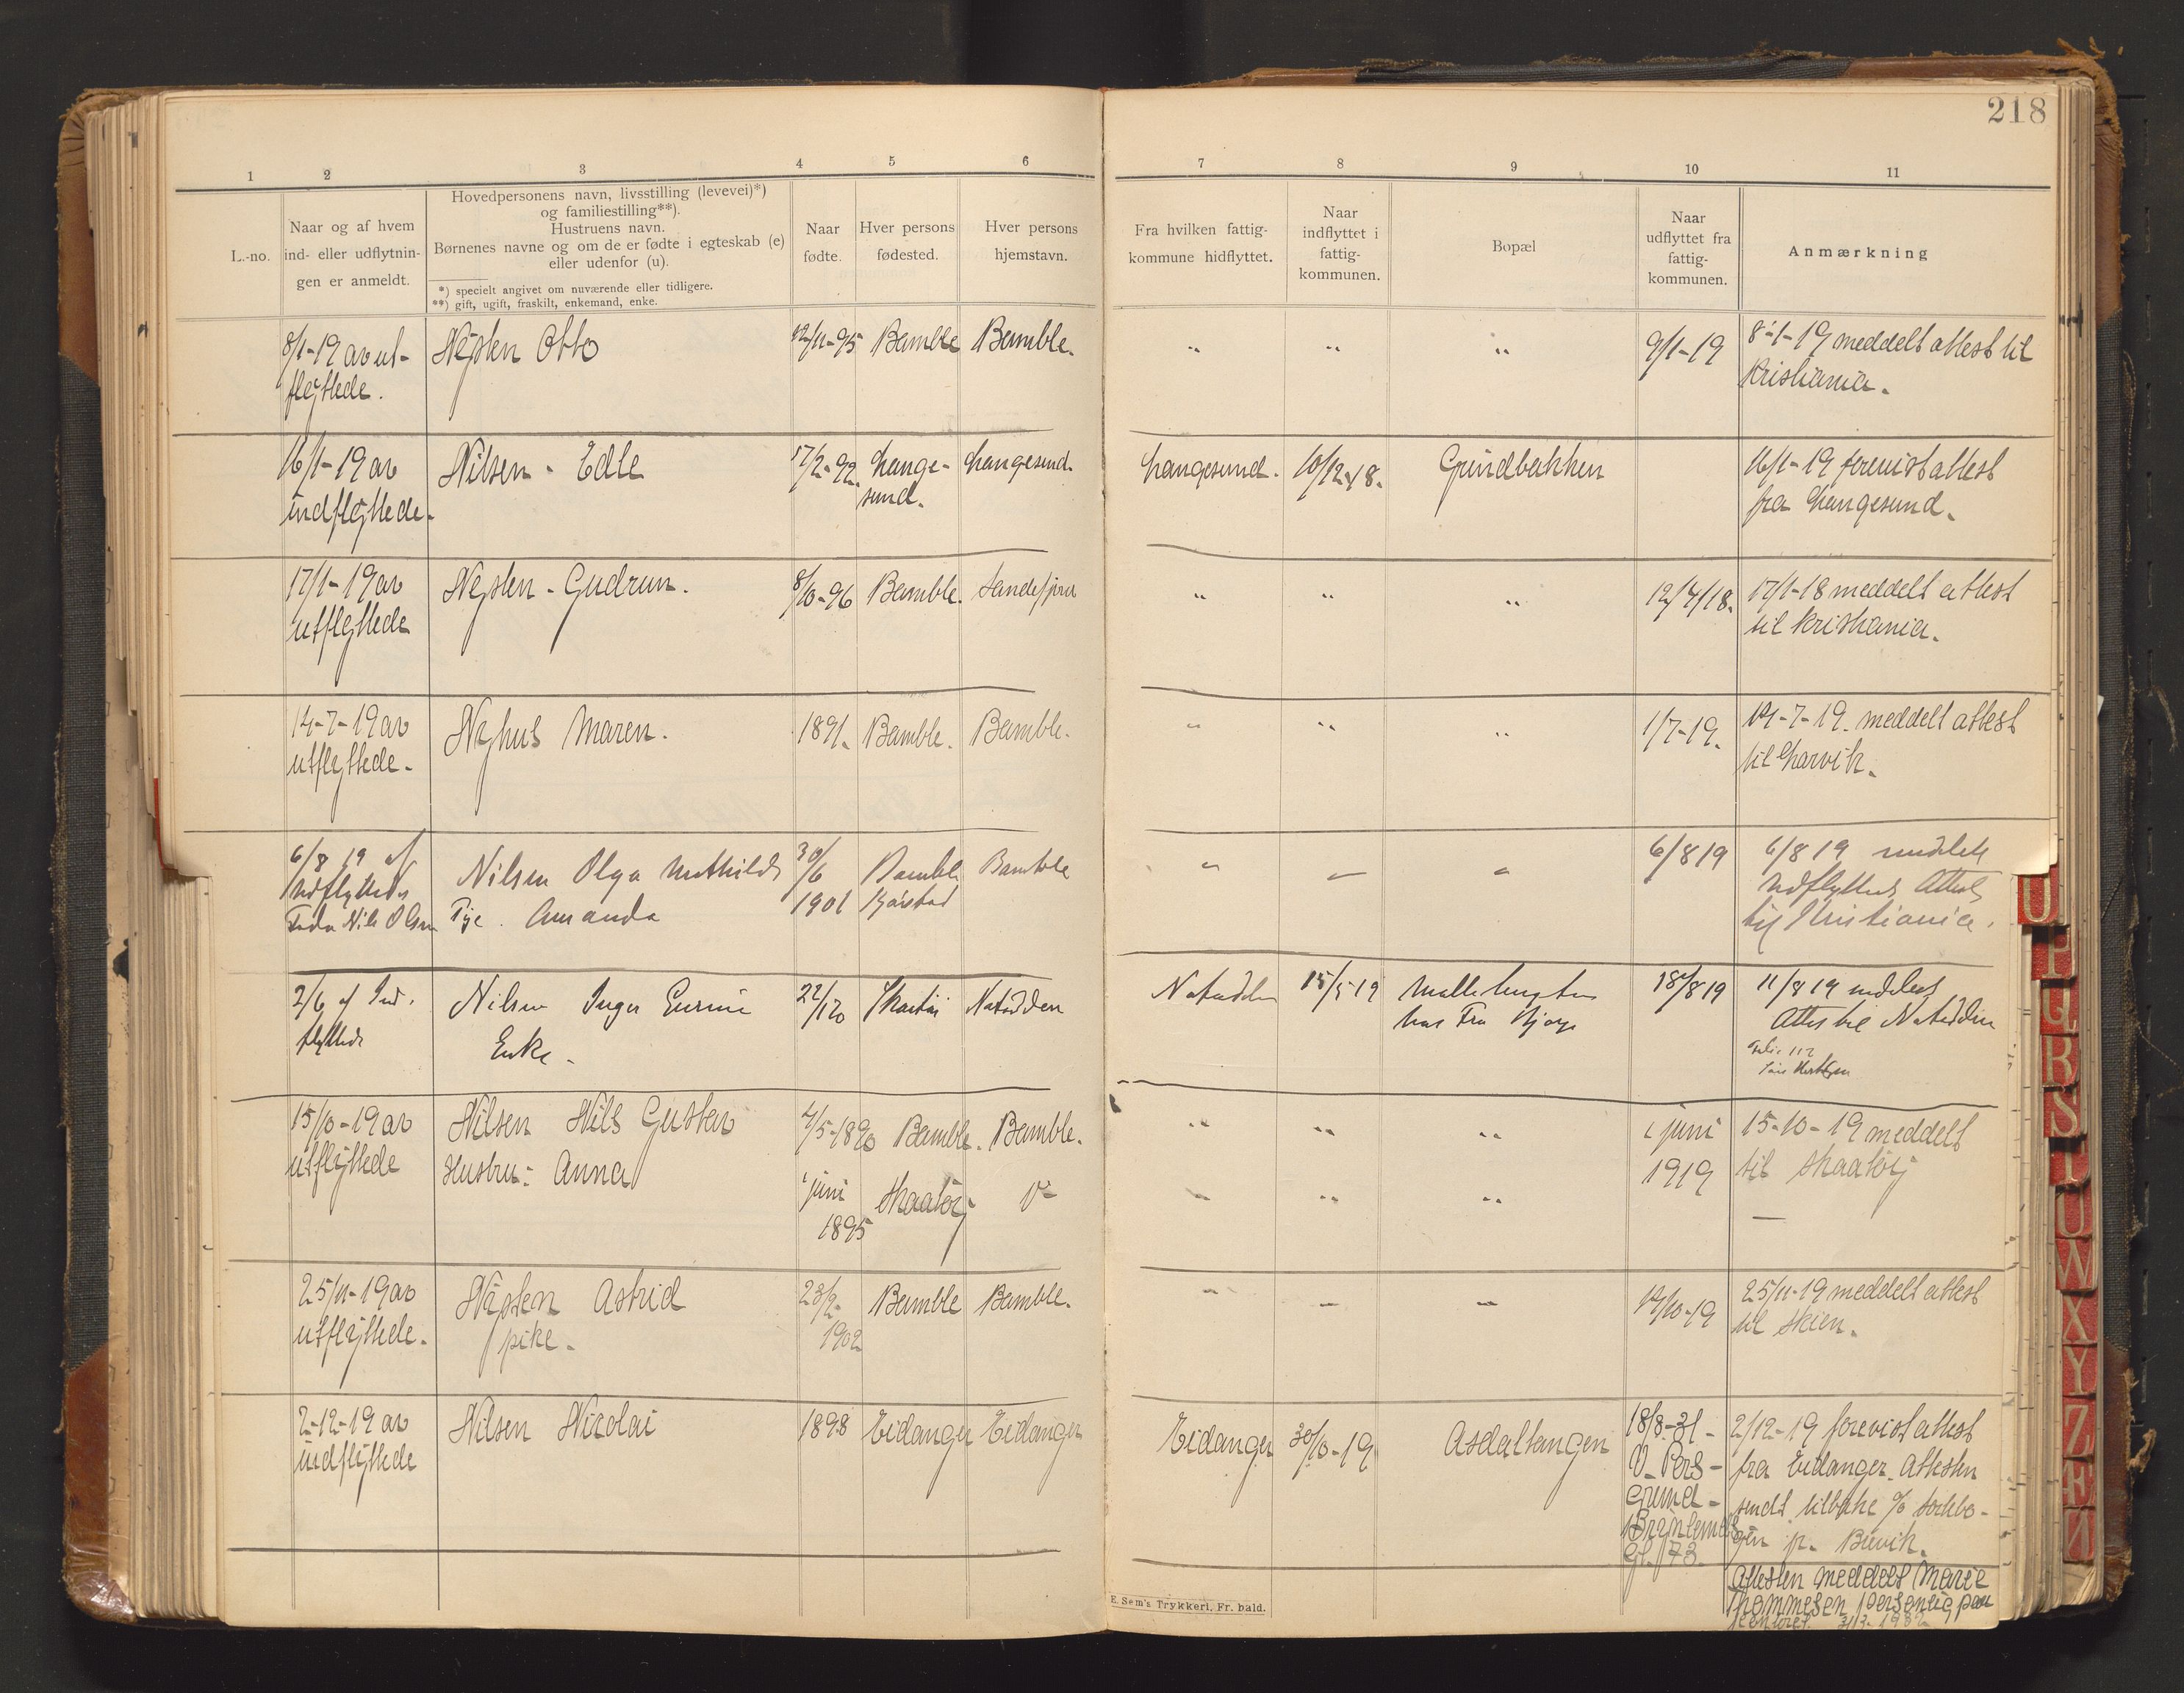 218
1 2 3 4 5 6 7 8 9 10 11
L.-no.
Naar og af hvem
ind- eller udflytnin-
gen er anmeldt.
Hovedpersonens navn, livsstilling (levevei)*)
og familiestilling**).
Hustruens navn.
Børnenes navne og om de er fødte i egteskab (e)
eller udenfor (u).
*) specielt angivet om nuværende eller tidligere.
**) gift, ugift, fraskilt, enkemand, enke.
Naar
fødte.
Hver persons
fødested.
Hver persons
hjemstavn.
Fra hvilken fattig-
kommune hidflyttet.
Naar
indflyttet i
fattig-
kommunen.
Bopæl
Naar
udflyttet fra
fattig-
kommunen.
Anmærkning
8/1-19 av ut-
flyttede.
Otto
12/11-95
Bamble
Bamble.
9/1-19
8-1-19 meddelt attest til
Kristiania.
16/1-19 av
indflyttede.
Nilsen - Edle
17/2-92.
Lange-
sund.
Langesund.
Langesund.
10/12-18.
Grindbakken
16/1-19 forevist attest
fra Langesund.
17/1-19 av
utflyttede
Gudrun.
8/10-96
Bamble.
Sandefjord
12/7/18.
17/1-18 meddelt attest
til Kristiania.
14-7-19 av
utflyttede.
Nyhus Maren.
1891.
Bamble.
Bamble.
1/7-19.
14-7-19. meddelt attest
til Larvik.
6/8 19 af
Udflyttede
Nils Olsen
Nilsen Olga Mathilde
Amanda
30/6
1901
Bamble
Bamble
6/8 19
6/8 19 meddelt
Udflyttede Attest
til Kristiania.
2/6 af Ind.
flyttede
Nilsen Inger
Enke.
22/1 20
Notodden
Notodden
15/5 19
hos Fru
18/8 19
11/8 19 meddelt
Attest til Notodden
15/10-19 av
utflyttede
Nilsen Nils Gustav
Hustru: Anna
4/5-1890
Bamble.
Bamble.
i juni
1919
15-10-19 meddelt
til Skaatøy
juni
1895
Skaatøy
25/11-19 av
utflyttede.
Astrid
pike.
23/2-
1902
Bamble
Bamble.
14/10-19
25/11-19 meddelt attest
til Skien.
2-12-19 av
indflyttede
Nilsen Nicolai
1898
Eidanger
Eidanger
Eidanger
30/10-19
Asdaltangen
18/8-31-
V. Pors-
grund-
Gl. 73.
2/12-19 forevist attest
fra Eidanger. Attesten
sendt tilbake
Attesten meddelt Marie
Thommesen personlig paa
kontoret.
E. Sem's Trykkeri, Fr. hald.
U
P
Q
R
S
T
U
W
X
Y
Z
Æ
Ø